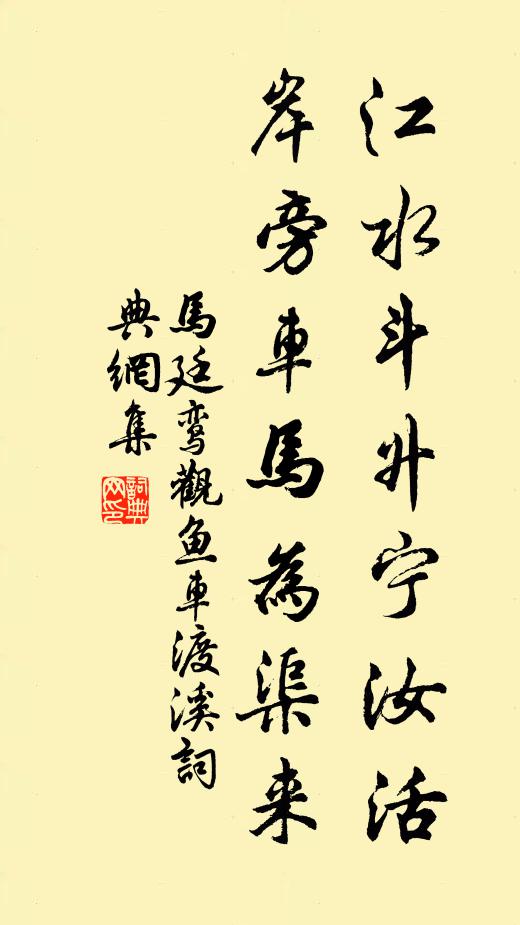 江水斗升宁汝活
岸旁車馬為渠来
馬廷鸾觀鱼車渡溪詞
典網集
詞典网印